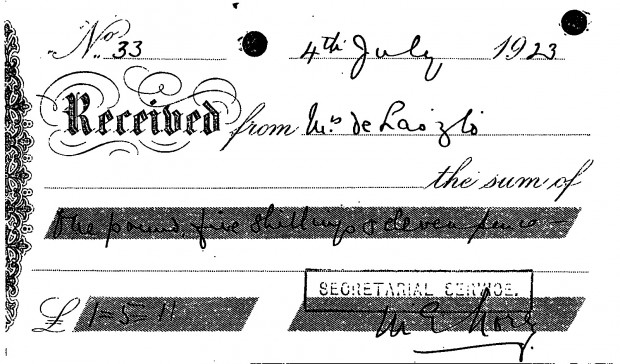 No. 33 4th July 1923
Received from Mrs de László
the sum of
One pound five shillings & eleven pence —
SECRETARIAL SERVICE.
£ 1=5=11